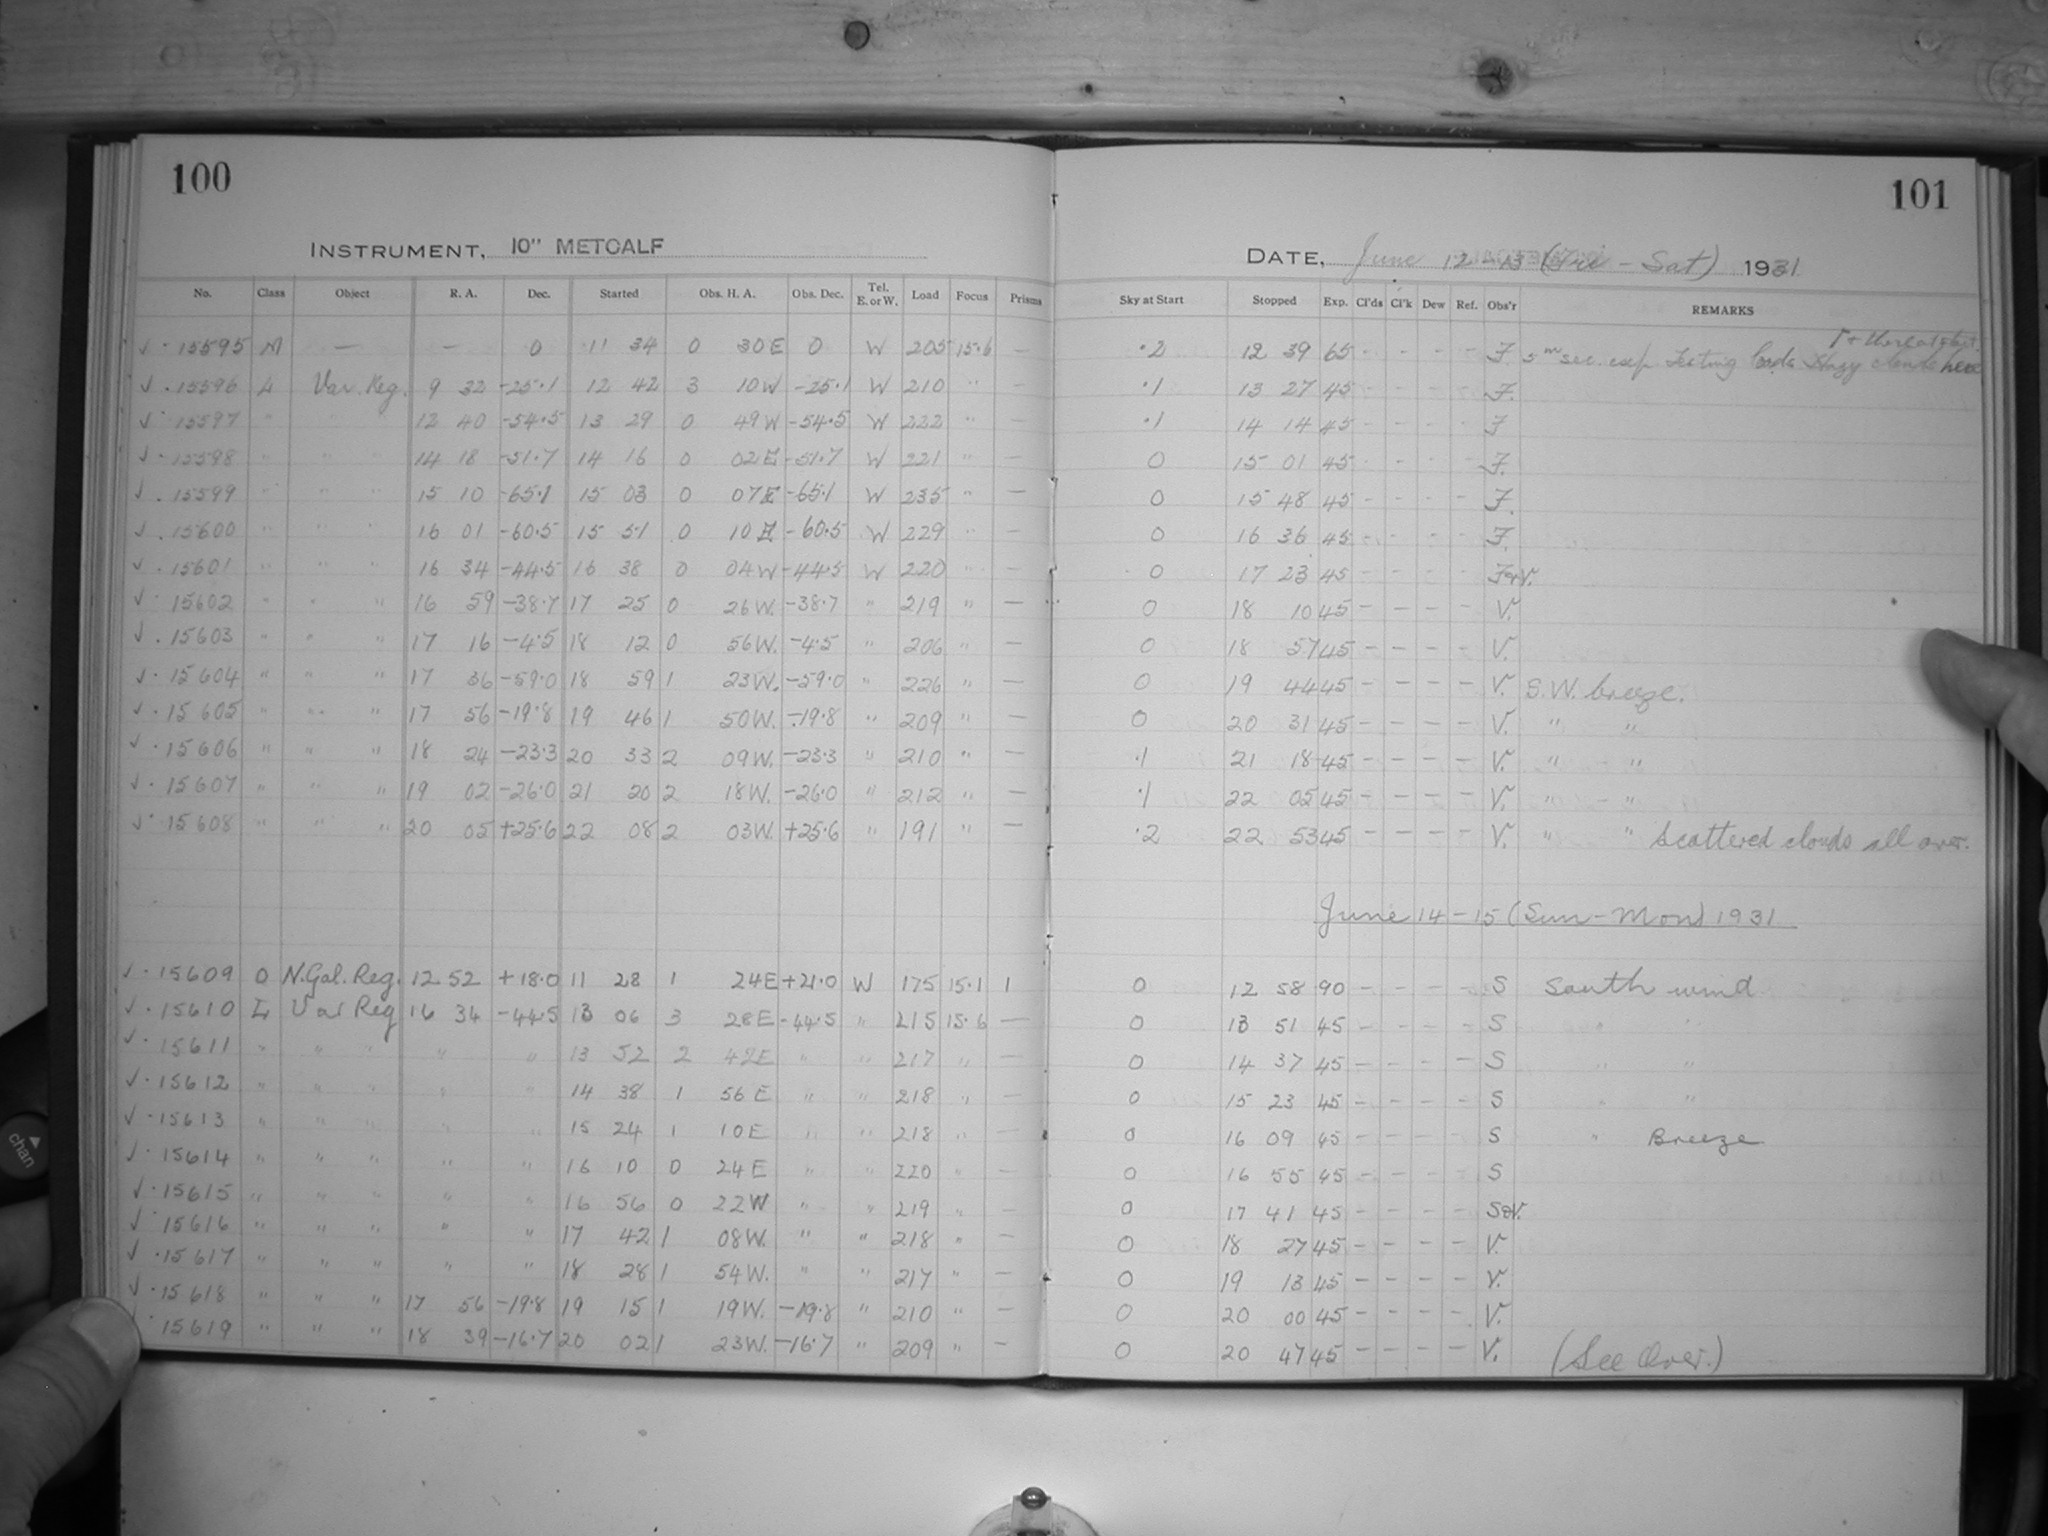 100
INSTRUMENT, 10" METCALF
No. Class Object R. A. Dec. Started Obs. H. A. Obs. Dec. Tel. E. or W. Load Focus Prisms
√ · 15595 M — — 0 11 34 0 30 E 0 W 205 15.6 —
√ · 15596 L Var. Reg. 9 32 -25.1 12 42 3 10 W -25.1 W 210 " —
√ · 15597 " " " 12 40 -54.5 13 29 0 49 W -54.5 W 222 " —
√ · 15598 " " " 14 18 -51.7 14 16 0 02 E -51.7 W 221 " —
√ · 15599 " " " 15 10 -65.1 15 03 0 07 E -65.1 W 235 " —
√ · 15600 " " " 16 01 -60.5 15 51 0 10 E -60.5 W 229 " —
√ · 15601 " " " 16 34 -44.5 16 38 0 04 W -44.5 W 220 " —
√ · 15602 " " " 16 59 -38.7 17 25 0 26 W. -38.7 " 219 " —
√ · 15603 " " " 17 16 -4.5 18 12 0 56 W. -4.5 " 206 " —
√ · 15604 " " " 17 36 -59.0 18 59 1 23 W. -59.0 " 226 " —
√ · 15605 " " " 17 56 -19.8 19 46 1 50 W. -19.8 " 209 " —
√ · 15606 " " " 18 24 -23.3 20 33 2 09 W. -23.3 " 210 " —
√ · 15607 " " " 19 02 -26.0 21 20 2 18 W. -26.0 " 212 " —
√ · 15608 " " " 20 05 +25.6 22 08 2 03 W. +25.6 " 191 " —
√ · 15609 O N. Gal. Reg. 12 52 +18.0 11 28 1 24 E +21.0 W 175 15.1 1
√ · 15610 L Var Reg 16 34 -44.5 13 06 3 28 E -44.5 " 215 15.6 —
√ · 15611 " " " " " 13 52 2 42 E " " 217 " —
√ · 15612 " " " " " 14 38 1 56 E " " 218 " —
√ · 15613 " " " " " 15 24 1 10 E " " 218 " —
√ · 15614 " " " " " 16 10 0 24 E " " 220 " —
√ · 15615 " " " " " 16 56 0 22 W " " 219 " —
√ · 15616 " " " " " 17 42 1 08 W. " " 218 " —
√ · 15617 " " " " " 18 28 1 54 W. " " 217 " —
√ · 15618 " " " 17 56 -19.8 19 15 1 19 W. -19.8 " 210 " —
√ · 15619 " " " 18 39 -16.7 20 02 1 23 W. -16.7 " 209 " —
101
DATE, June 12-13 (Fri - Sat) 1931
Sky at Start Stopped Exp. Cl'ds Cl'k Dew Ref. Obs'r REMARKS
.2 12 39 65 - - - - F 5 m sec. exp. Testing loads Hazy clouds here
.1 13 27 45 - - - - F.
.1 14 14 45 - - - - F
0 15 01 45 - - - - F.
0 15 48 45 - - - - F.
0 16 36 45 - - - - F.
0 17 23 45 - - - - F&V.
0 18 10 45 - - - - V.
0 18 57 45 - - - - V.
0 19 44 45 - - - - V. S.W. breeze.
0 20 31 45 - - - - V. " "
.1 21 18 45 - - - - V. " - "
.1 22 05 45 - - - - V. " - "
.2 22 53 45 - - - - V. " " Scattered clouds all over.
June 14-15 (Sun-Mon) 1931
0 12 58 90 - - - - S South wind
0 13 51 45 - - - - S " "
0 14 37 45 - - - - S " "
0 15 23 45 - - - - S " "
0 16 09 45 - - - - S " Breeze
0 16 55 45 - - - - S
0 17 41 45 - - - - S&V.
0 18 27 45 - - - - V.
0 19 13 45 - - - - V.
0 20 00 45 - - - - V.
0 20 47 45 - - - - V. (See Over.)
chan